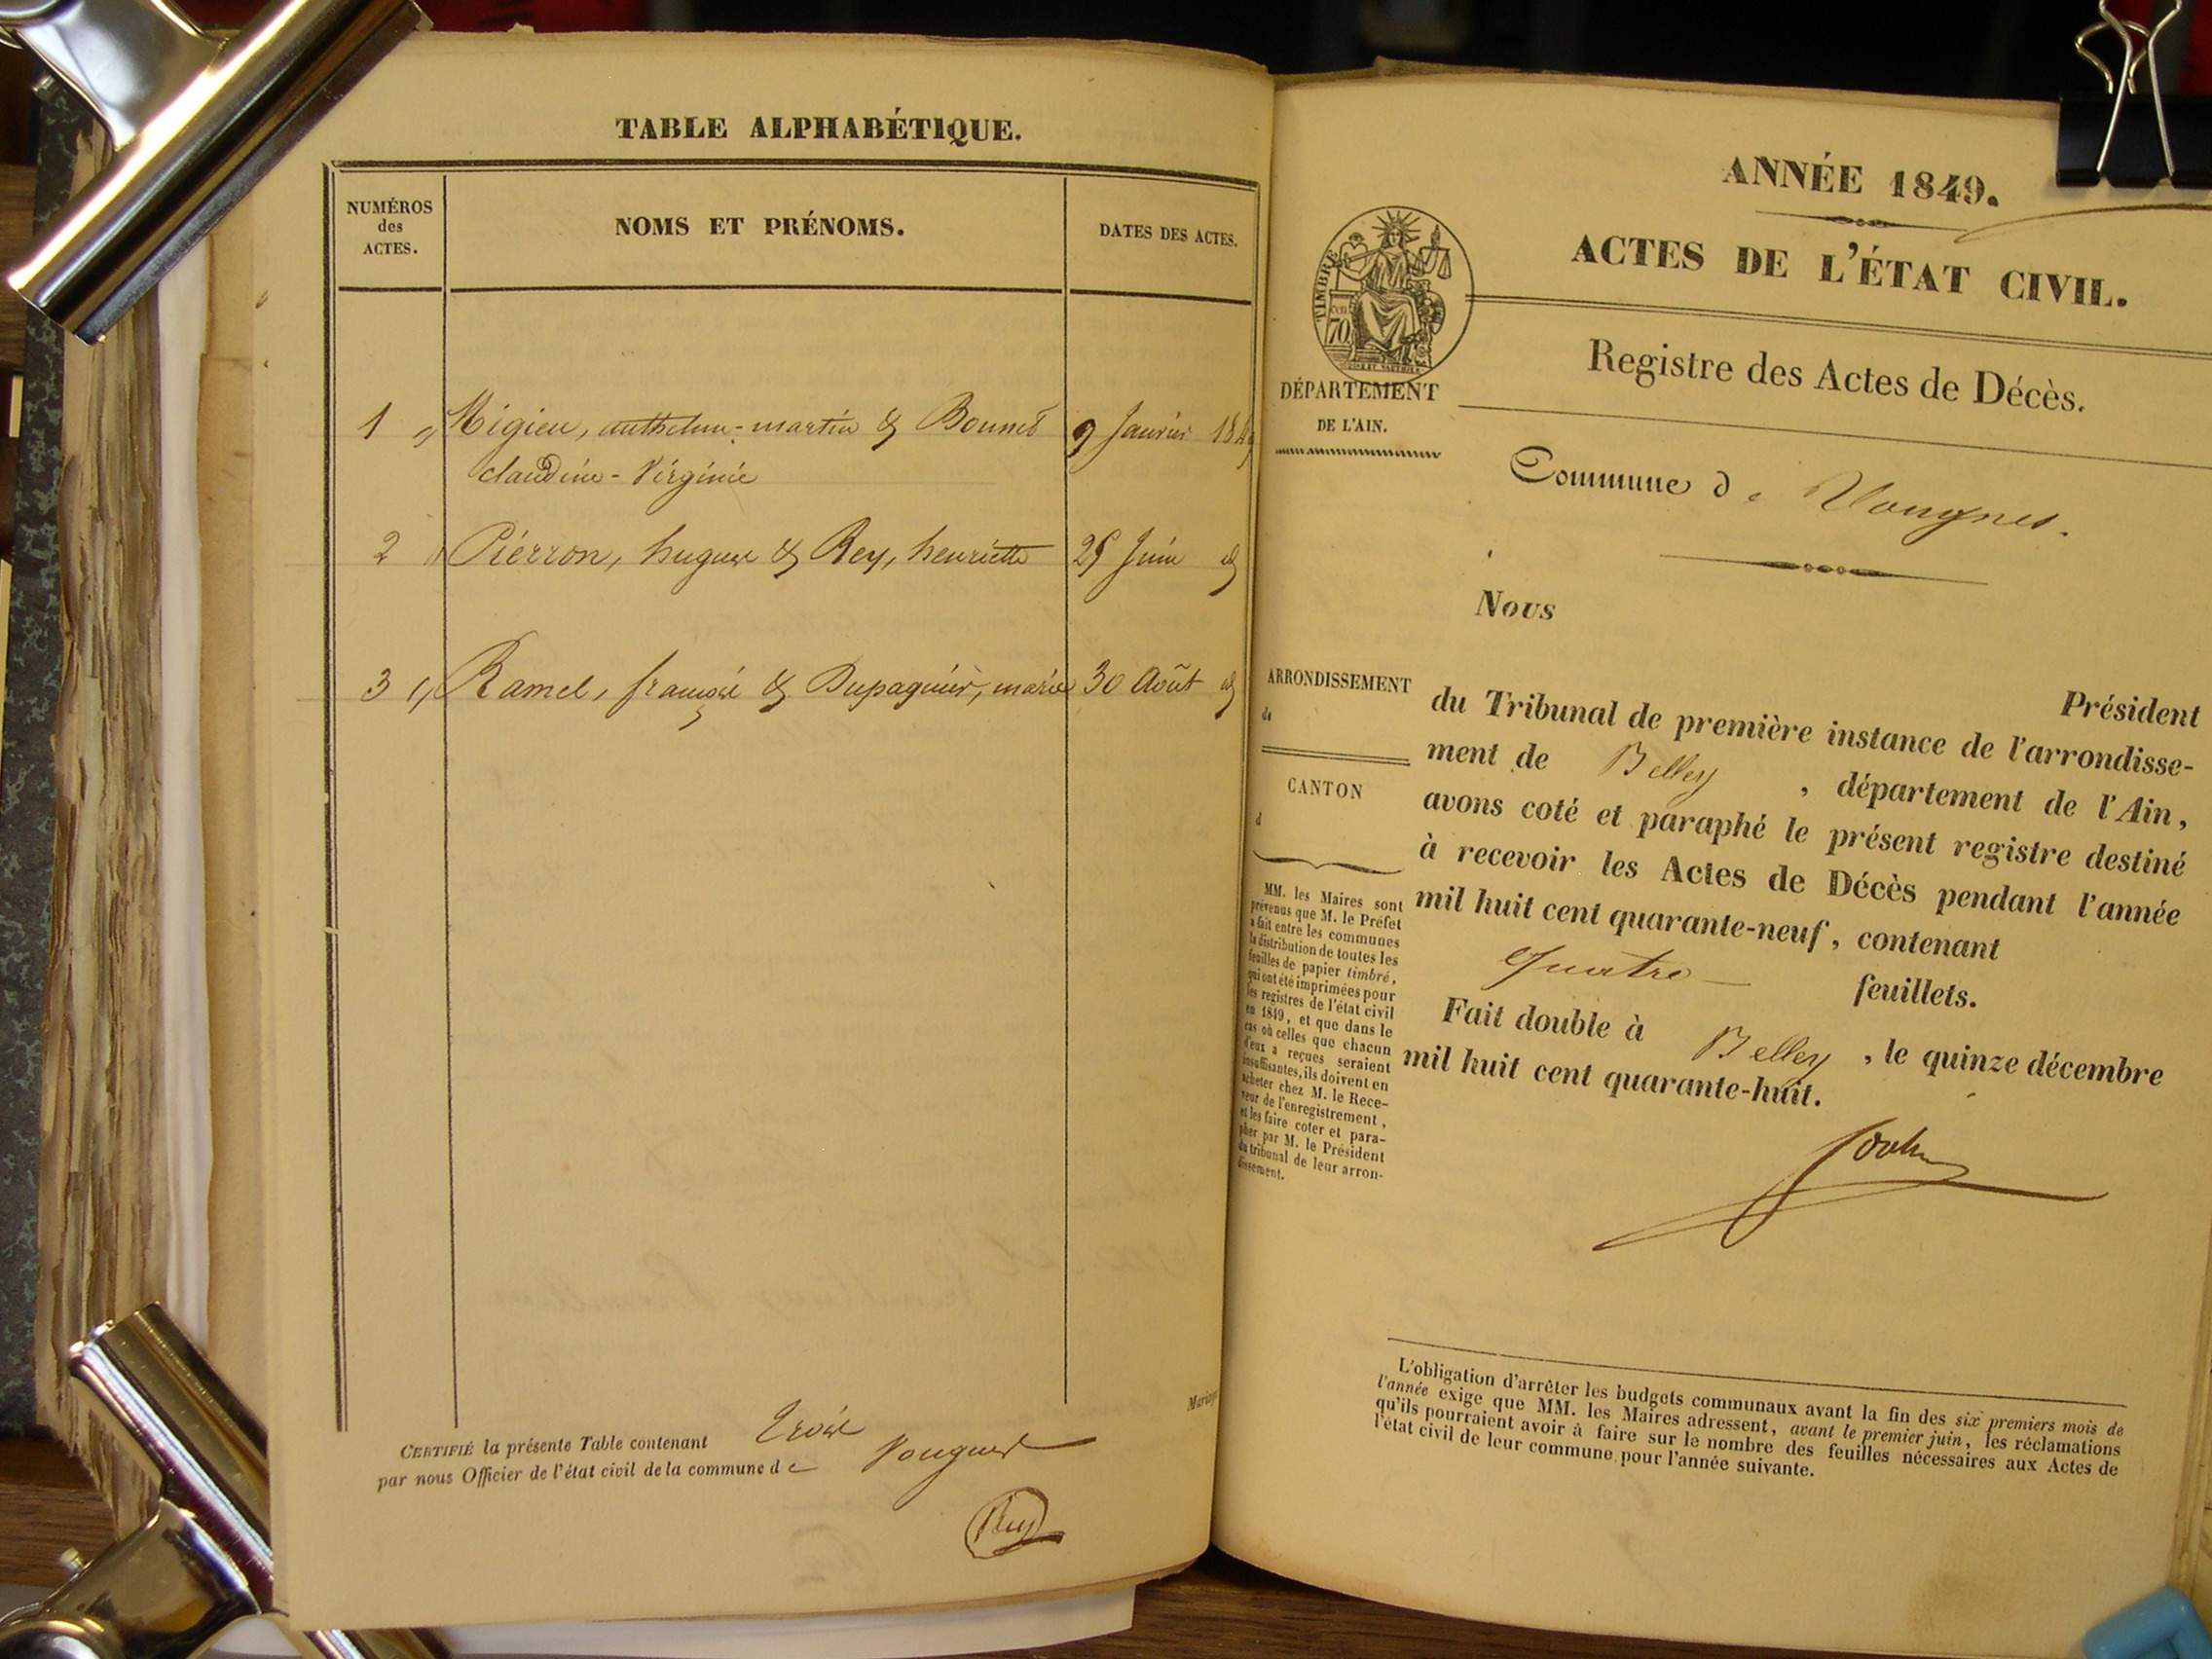 TABLE ALPHABÉTIQUE.
NUMÉROS
des
ACTES.
NOMS ET PRÉNOMS.
DATES DES ACTES.
1 Migieu, anthelme-martin & Bonnet 9 Janvier 1849
claudine-Virginie
2 Piérron, hugues & Rey, henriette 25 Juin id
3 Ramel, françois & Dupaquier, marie 30 Août id
Mariage
CERTIFIÉ la présente Table contenant trois
par nous Officier de l'état civil de la commune de Vougnes
Rey
ANNÉE 1849.
ACTES DE L'ÉTAT CIVIL.
TIMBRE
70
Registre des Actes de Décès.
DÉPARTEMENT
DE L'AIN.
Commune de Vougnes.
Nous
Président
ARRONDISSEMENT
de
CANTON
d
du Tribunal de première instance de l'arrondisse-
ment de Belley, département de l'Ain,
avons coté et paraphé le présent registre destiné
à recevoir les Actes de Décès pendant l'année
mil huit cent quarante-neuf, contenant
quatre feuillets.
Fait double à Belley, le quinze décembre
mil huit cent quarante-huit.
MM. les Maires sont
prévenus que M. le Préfet
a fait entre les communes
la distribution de toutes les
feuilles de papier timbré,
qui ont été imprimées pour
les registres de l'état civil
en 1849, et que dans le
cas où celles que chacun
d'eux a reçues seraient
insuffisantes, ils doivent en
acheter chez M. le Rece-
veur de l'enregistrement,
et les faire coter et para-
pher par M. le Président
du tribunal de leur arron-
dissement.
L'obligation d'arrêter les budgets communaux avant la fin des six premiers mois de
l'année exige que MM. les Maires adressent, avant le premier juin, les réclamations
qu'ils pourraient avoir à faire sur le nombre des feuilles nécessaires aux Actes de
l'état civil de leur commune pour l'année suivante.